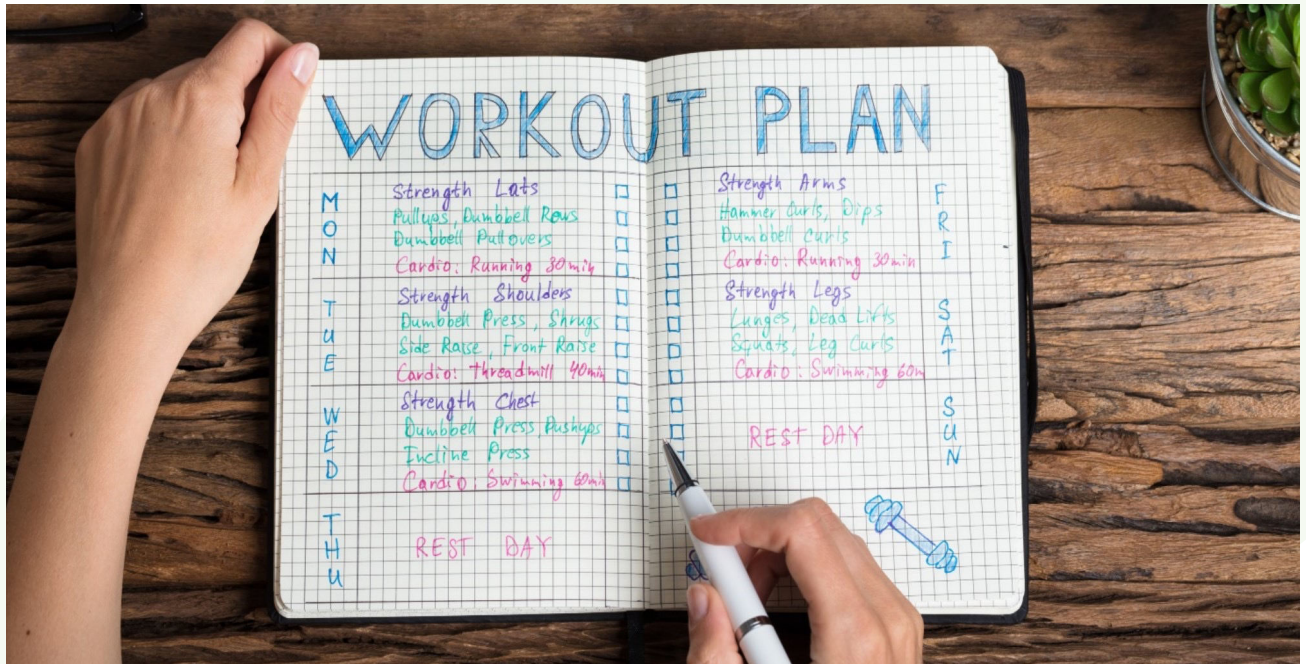 WORKOUT PLAN
MON
Strength Lats
Pullups, Dumbbell Rows
Dumbbell Pullovers
Cardio: Running 30min
TUE
Strength Shoulders
Dumbbell Press, Shrugs
Side Raise, Front Raise
Cardio: Threadmill 40min
WED
Strength Chest
Dumbbell Press, Pushups
Incline Press
Cardio: Swimming 60min
THU
REST DAY
FRI
Strength Arms
Hammer Curls, Dips
Dumbbell Curls
Cardio: Running 30min
SAT
Strength Legs
Lunges, Dead Lifts
Squats, Leg Curls
Cardio: Swimming 60m
SUN
REST DAY